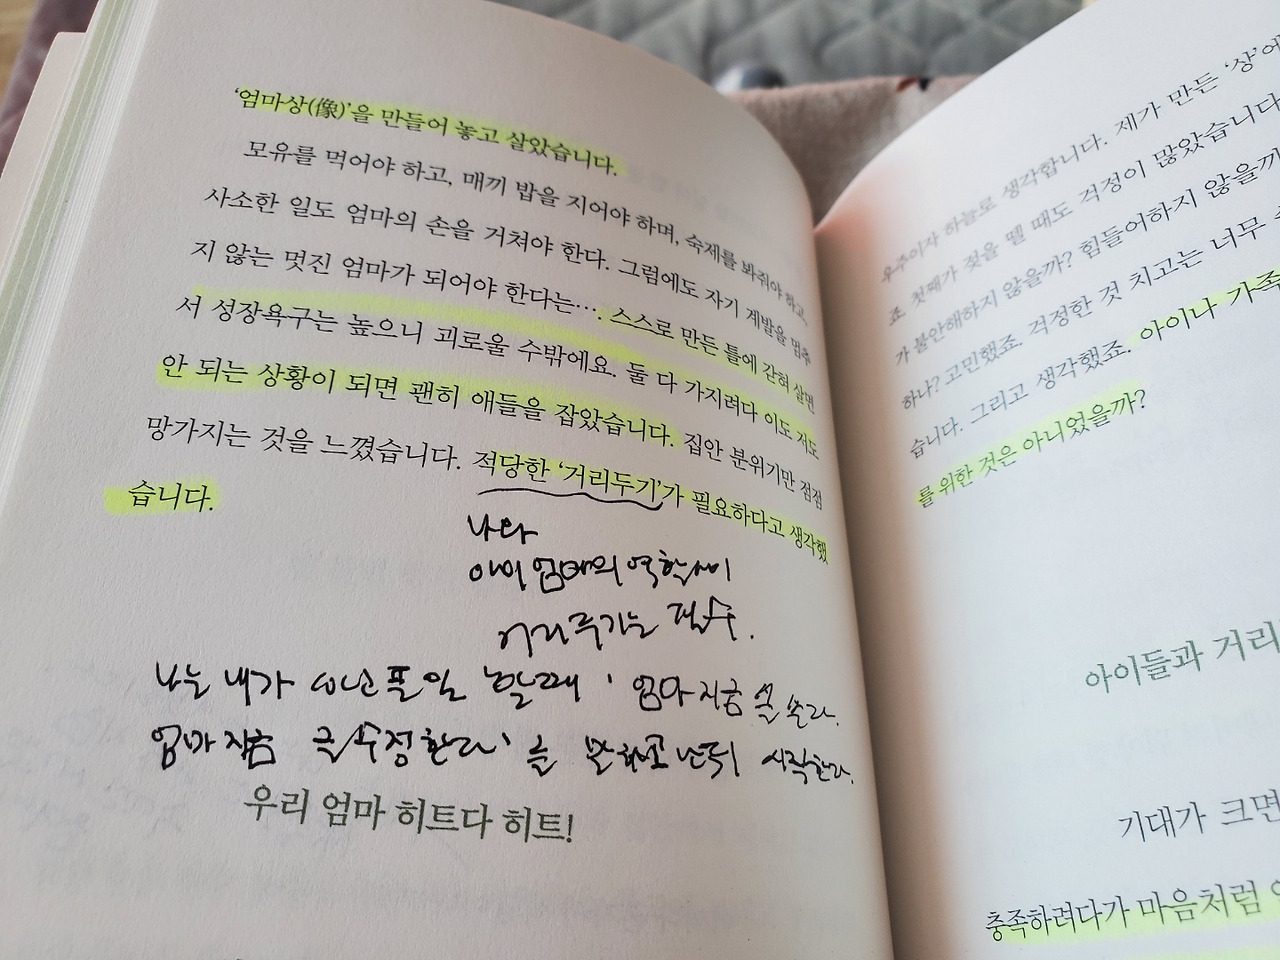 ‘엄마상(像)’을 만들어 놓고 살았습니다.
모유를 먹어야 하고, 매끼 밥을 지어야 하며, 숙제를 봐줘야 하고,
사소한 일도 엄마의 손을 거쳐야 한다. 그럼에도 자기 계발을 멈추
지 않는 멋진 엄마가 되어야 한다는…. 스스로 만든 틀에 갇혀 살면
서 성장욕구는 높으니 괴로울 수밖에요. 둘 다 가지려다 이도 저도
안 되는 상황이 되면 괜히 애들을 잡았습니다. 집안 분위기만 점점
망가지는 것을 느꼈습니다. 적당한 ‘거리두기’가 필요하다고 생각했
습니다.
나와
아이 엄마의 역할사이
거리두기는 필수.
나는 내가 일 할때 ' 엄마지금 글 쓴다.
엄마지금 글수정한다' 를 말하고 시작한다.
우리 엄마 히트다 히트!
우주이자 하늘로 생각합니다. 제가 만든 ‘상’에
죠. 첫째가 젖을 뗄 때도 걱정이 많았습니다
가 불안해하지 않을까? 힘들어하지 않을까
하나? 고민했죠. 걱정한 것 치고는 너무
습니다. 그리고 생각했죠. 아이나 가족
를 위한 것은 아니었을까?
아이들과 거리
기대가 크면
충족하려다가 마음처럼